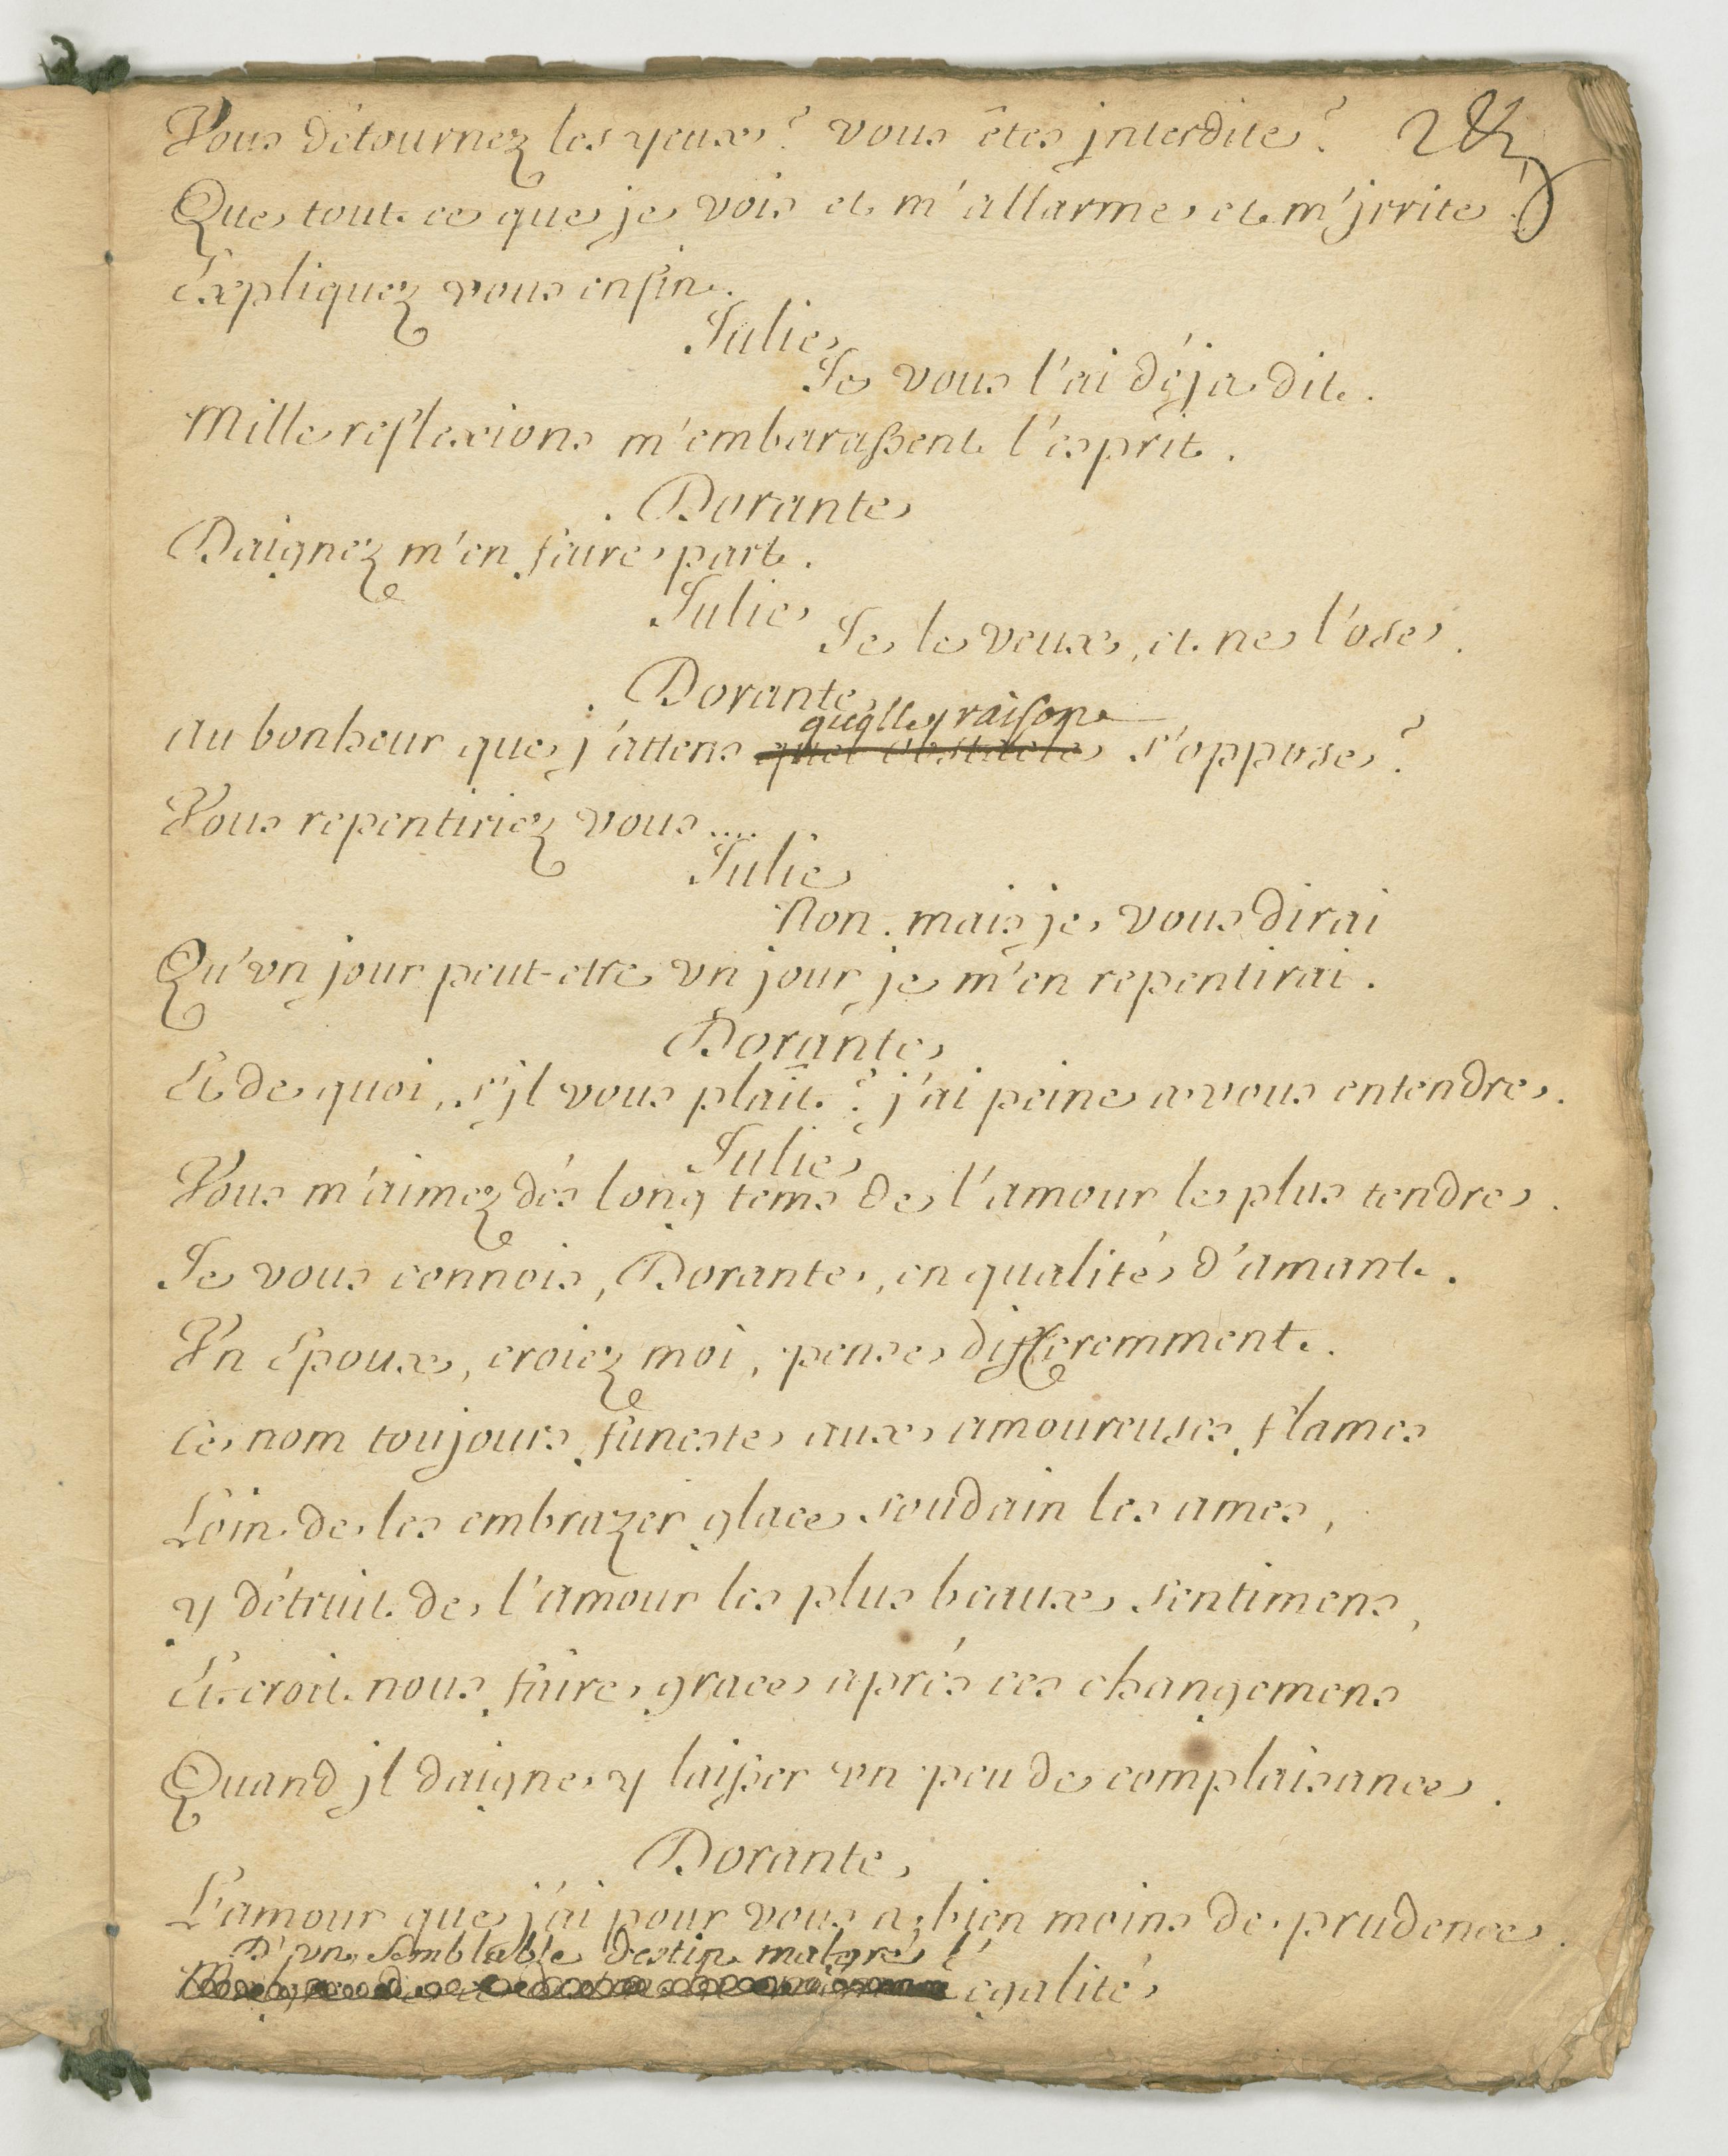 Vous détournez les yeux? vous êtes jnterdite?
Que tout ce que je vois et m'allarme et m'jrrite!
Expliquez vous enfin.
Julie
Je vous l'ai déja dit.
Mille reflexions m'embaraßent l'esprit.
Dorante
Daignez m'en faire part.
Julie
Je le veux, et ne l'ose.
Dorante
quelle raison
au bonheur que j'attens quel obstacle s'oppose?
Vous repentiriez vous....
Julie
Non. mais je vous dirai
Qu'vn jour peut-etre vn jour je m'en repentirai.
Dorante
Et de quoi, s'jl vous plaît? j'ai peine a vous entendre.
Julie
Vous m'aimez dés long tems de l'amour le plus tendre.
Je vous connois, Dorante, en qualité d'amant.
Vn Epoux, croiez moi, pense differemment.
Ce nom toujours funeste aux amoureuses flames
Loin de les embrazer glace soudain les ames,
y détruit de l'amour les plus beaux sentimens,
Et croit nous faire grace aprés ces changemens
Quand jl daigne y laißer vn peu de complaisance.
Dorante
L'amour que j'ai pour vous a bien moins de prudence.
D'vn semblable destin malgré l'
egalité